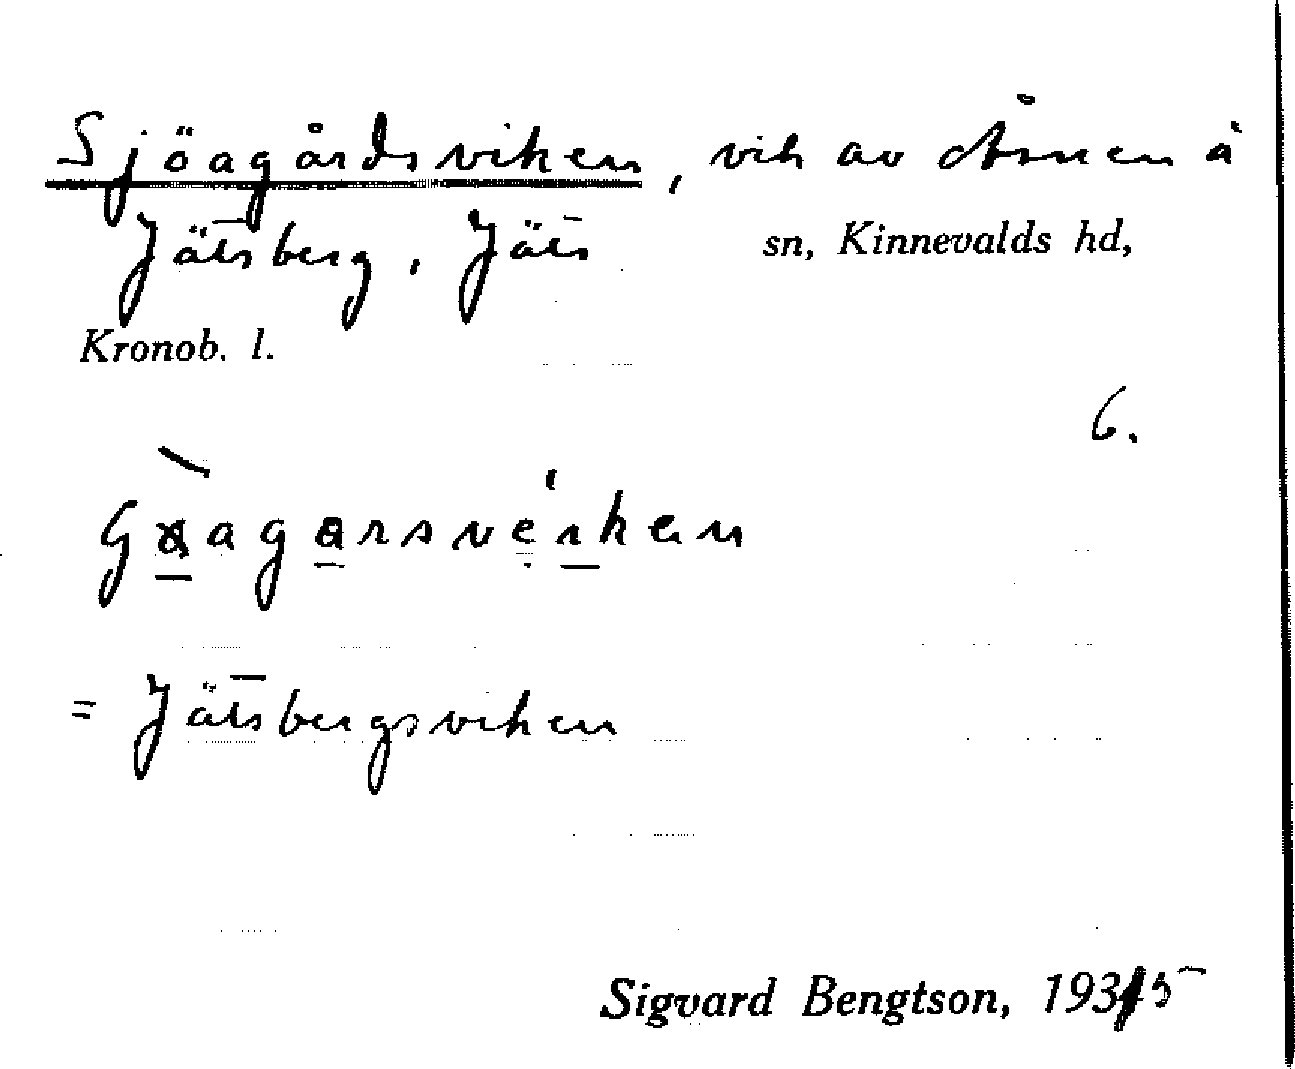 Sjöagårdsviken, vik av Åsnen å
Jätsberg, Jäts sn, Kinnevalds hd,
Kronob. l.
6.
= Jätsbergsviken
Sigvard Bengtson, 1935